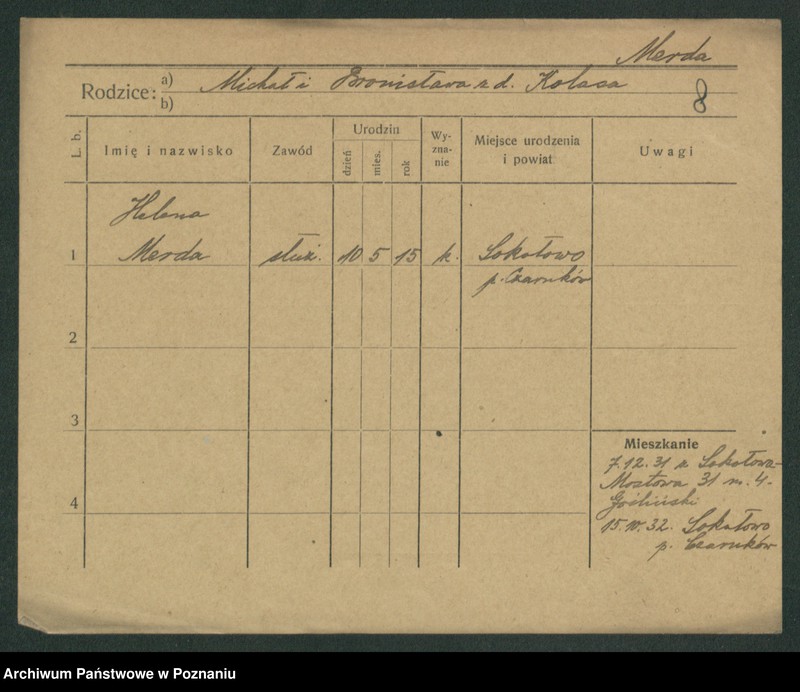 Merda
Rodzice: a) Michał i Bronisława z d. Kolasa
b)
8
L. b.
Imię i nazwisko
Zawód
Urodzin
dzień
mies.
rok
Wy-
zna-
nie
Miejsce urodzenia
i powiat
Uwagi
Helena
1 Merda służ. 10 5 15 k. Sokołowo
p. Czarnków
2
3
4
Mieszkanie
7.12.31 z Sokołowa-
Mostowa 31 m. 4-
Gośliński
15.IV.32. Sokołowo
p. Czarnków
Archiwum Państwowe w Poznaniu